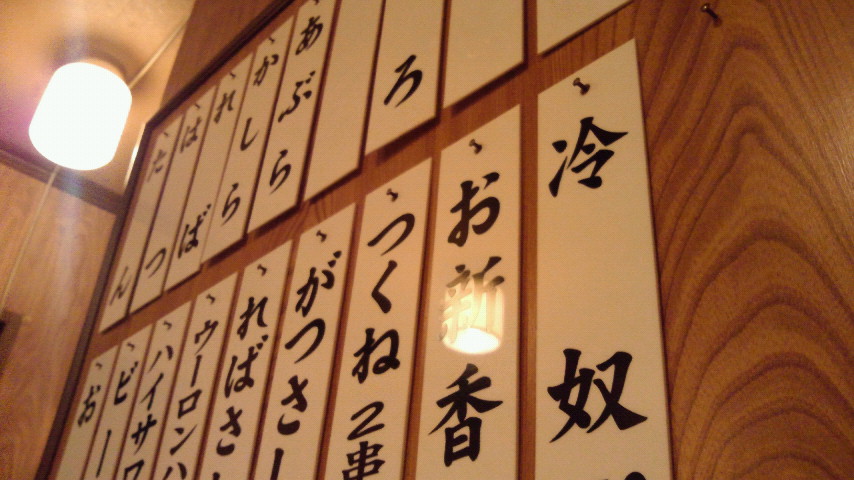 ろ
あぶら
かしら
れば
はつ
たん
冷奴
お新香
つくね2串
がつさし
ればさし
ウーロンハ
ハイサワ
ビー
お